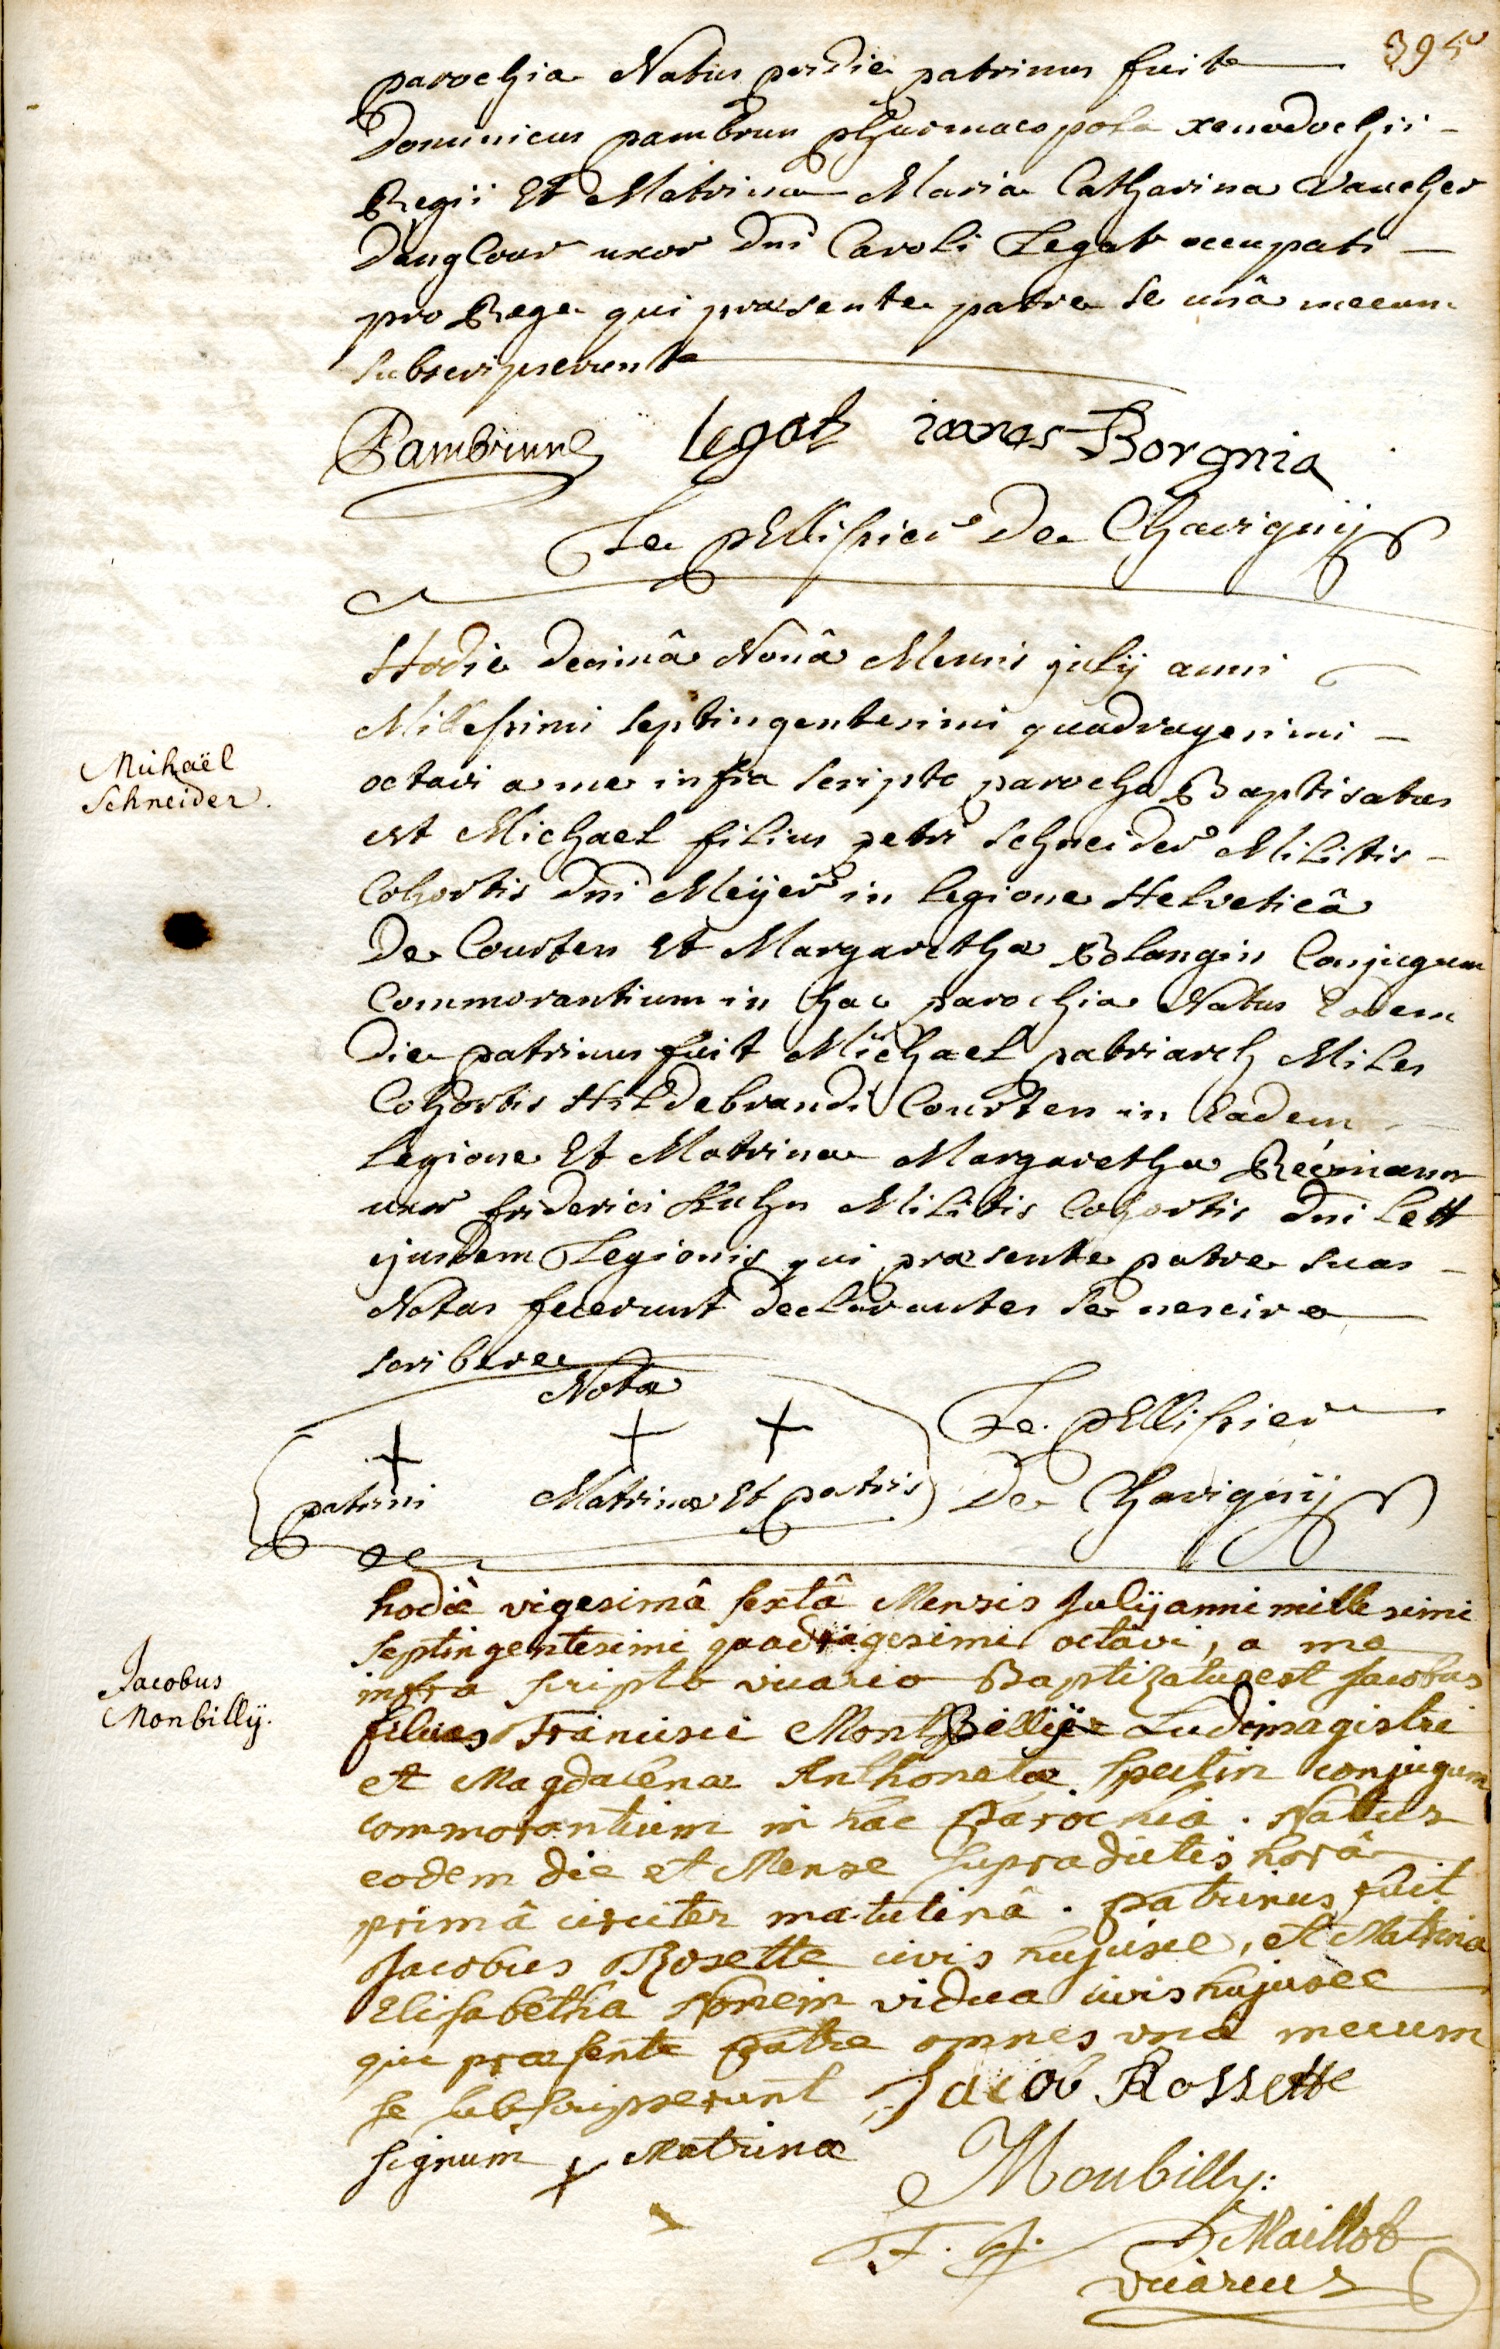 parochia Natus pridie patrinus fuit
Dominicus pambrun pharmacopola xenodochii
Regii Et Matrina Maria Catharina Vaucher
uxor Dni Caroli Legat occupati
pro Rege qui præsente patre se unâ mecum
subscripserunt
Pambrun legat Borgnia
Le pEllissier De Chavignij
Hodie Decimâ Nonâ Mensis julij anni
Millessimi septingentesimi quadragesimi
octavi a me infra scripto parocho Baptisatus
est Michael filius petri Schneider Militis
Cohortis Dni Meijer in legione Helveticâ
De Courten Et Margaretha Blangin Conjugum
Commorantium in hac parochia Natus Eodem
Die patrinus fuit Michael patriarch Miles
Cohortis Hildebrandi Courten in Eadem
Legione Et Matrina Margaretha
uxor friderici Kuhn Militis Cohortis Dni Lett
ejusdem Legionis qui præsente patre suas
Notas fecerunt declarantes se nescire
scribere
Nota
patrini Matrinæ Et patris
Le pEllissier
De Chavignij
Michaël
Schneider.
hodiè vigesimâ sextâ Mensis Julij anni millesimi
septingentesimi quadragesimi octavi, a me
infra scripto vicario Baptizatus est Jacobus
filius Francisci MontBillij Ludimagistri
et Magdalénæ Anthonetæ Spectin conjugum
commorantium in hac Parochiâ. Natus
eodem die et Mense supradictis horâ
primâ circiter matutinâ. patrinus fuit
Jacobus Rosette civis hujusce, et Matrina
Elisabetha vidua civis hujusce
qui præsente Patre omnes unâ mecum
se subscripserunt Jacob Rossette
signum Matrinæ
Monbilly:
Maillot
vicarius
Jacobus
Monbillÿ.